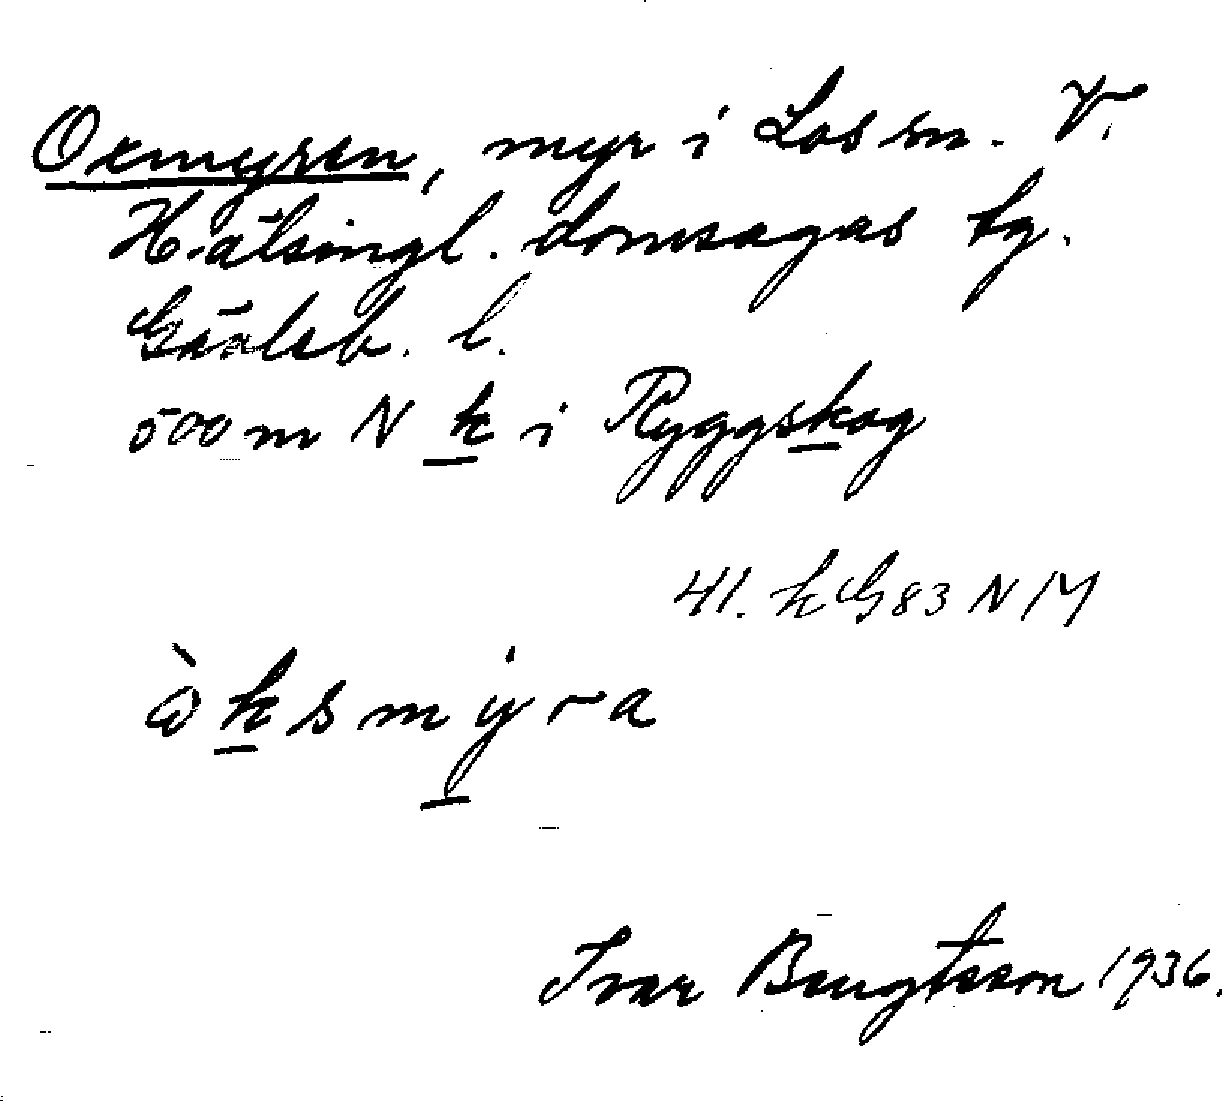 Oxmyren, myr i Los sn. V.
Hälsingl. domsagas tg.
Gävleb. l.
500 m N k i Ryggskog
41. k G 83 N 14
òksmýra
Ivar Bengtsson 1936.